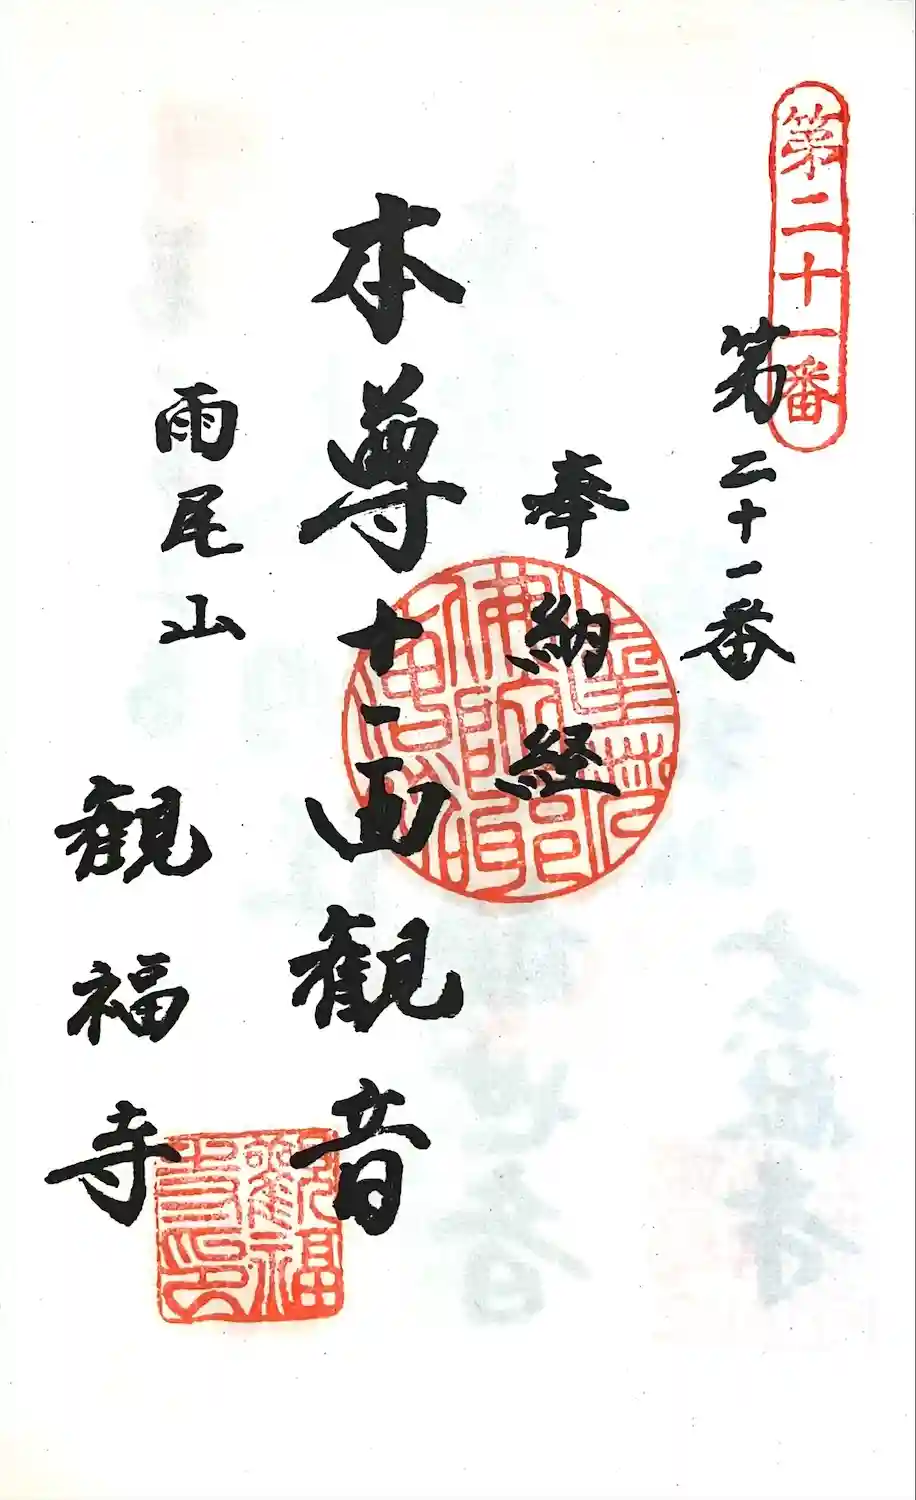 第二十一番
第二十一番
奉納経
本尊十一面観音
雨尾山
観福寺
觀福寺印